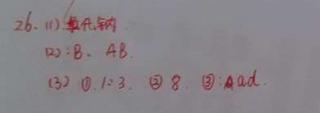 26. (1) 氧化钠
(2): B. AB.
(3) ① 1:3. ② 8. ③: ad.